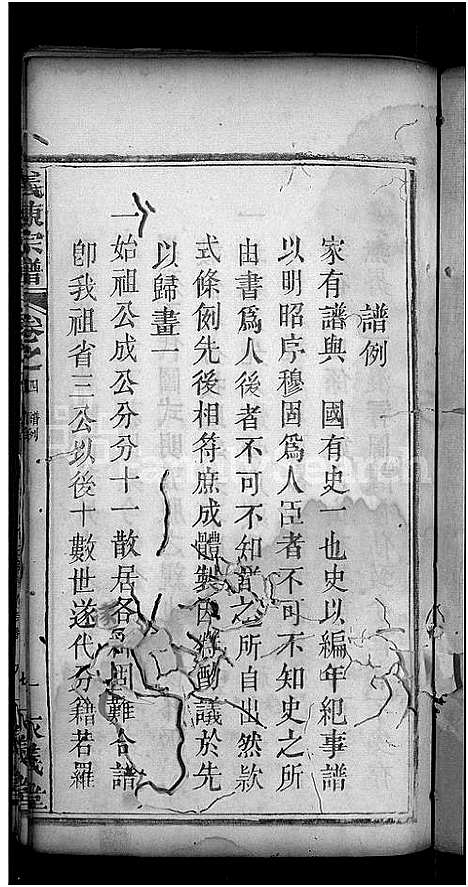 譜例
家有譜與國有史一也史以編年紀事譜
以明昭序穆固爲人臣者不可不知史之所
由書爲人後者不可不知譜之所自出然欵
式條例先後相符庶成體製因將酌議於先
以歸畫一
一始祖公成公分分十一散居各 固難合譜
卽我祖省三公以後十數世遂代分籍若羅
義陳宗譜
卷之
四
譜例
義堂